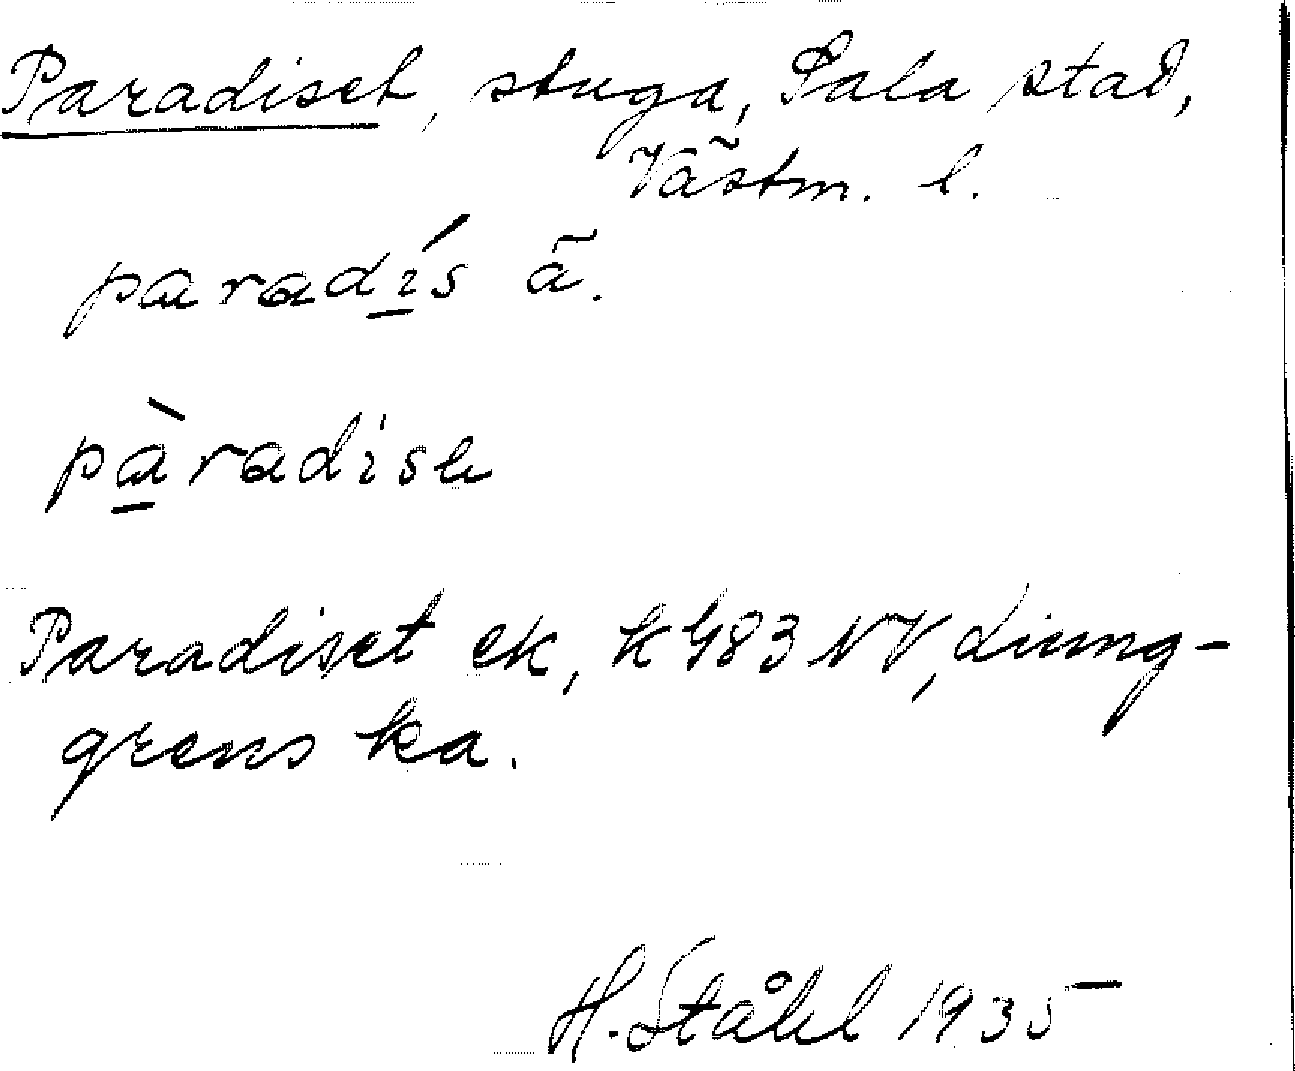 Paradiset, stuga, Sala stad,
Västm. l.
paradís ä.
pàradise
Paradiset ek, k 983 NV, Ljung-
grens ka.
H. Ståhl 1935